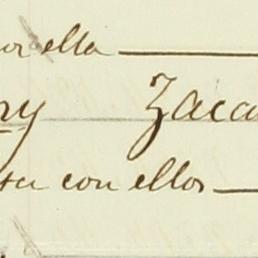 por ella
ry Zaca
sa con ellos